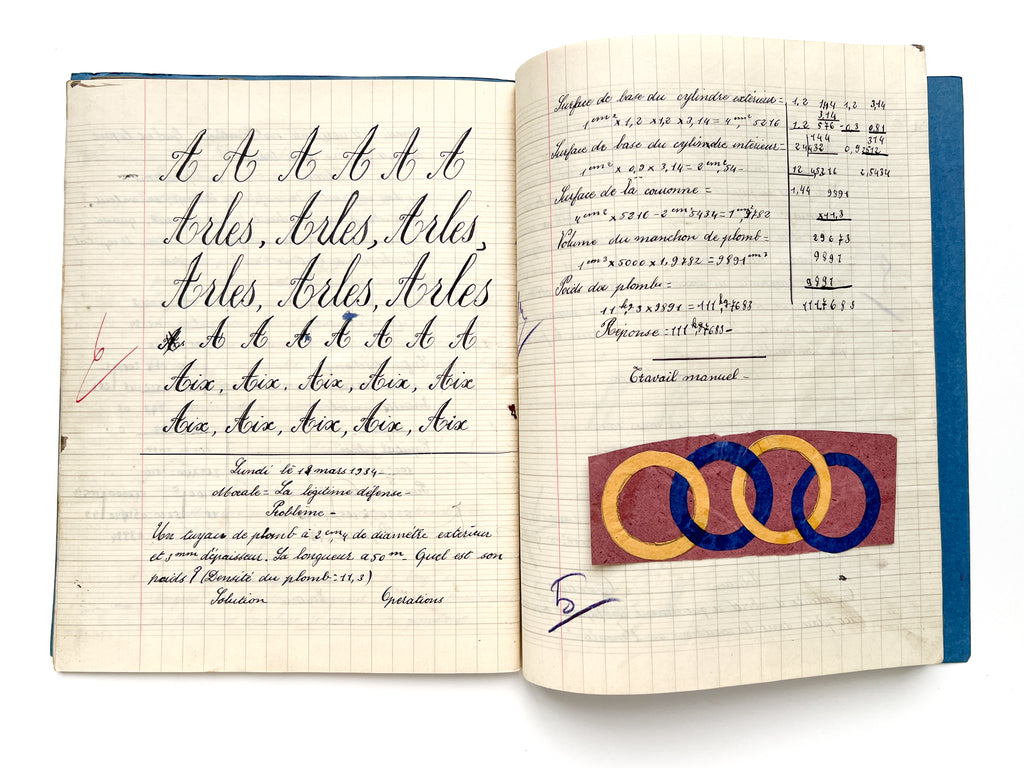 A A A A A A
Arles, Arles, Arles,
Arles, Arles, Arles
A A A A A A A
Aix, Aix, Aix, Aix, Aix
Aix, Aix, Aix, Aix, Aix
6
Lundi le mars 1934-
Morale = La légitime défense-
Problème-
Un tuyau de plomb à 2cm,4 de diamètre extérieur
et 3mm d'épaisseur. Sa longueur a 50m- Quel est son
poids? (Densité du plomb = 11,3)
Solution Opérations
Surface de base du cylindre extérieur =
1cm² x 1,2 x 1,2 x 3,14 = 4cm²,5216
Surface de base du cylindre intérieur =
1cm² x 0,9 x 3,14 = 2cm²,54-
Surface de la couronne =
4cm² x 5216 - 2cm²5434 = 1cm²,9782
Volume du manchon de plomb =
1cm³ x 5000 x 1,9782 = 9891cm³
Poids du plomb =
11kg,3 x 9891 = 111kg,7683
Réponse = 111kg,7683-
1,2 144 1,2 3,14
3,14
1,2 576 0,3 0,81
144 314
0,9 2512
2,5434
1,44 9891
x11,3
29673
9891
9891
1117683
Travail manuel-
5